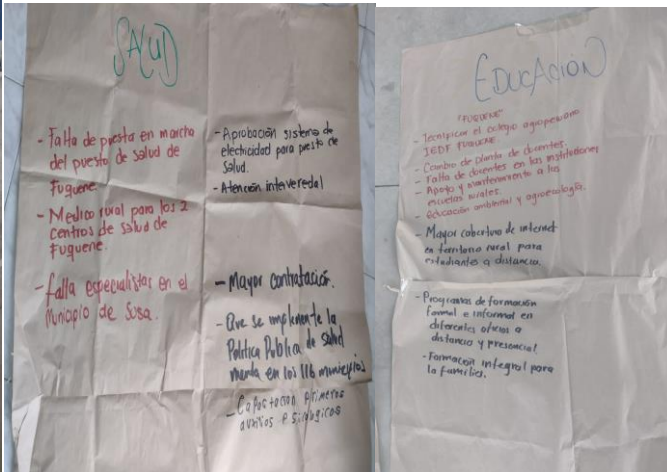 SALUD
- Falta de puesta en marcha
del puesto de salud de
Fuquene.
- Medico rural para los 2
centros de salud de
Fuquene.
- falla especialistas en el
Municipio de Susa.
- Aprobación sistema de
electricidad para presto de
Salud.
- Atención interveredal
- Mayor contratación.
- Que se implemente la
Politica Publica de Salud
menta en los 116 municipios
- Capacitación primeros
auxilios psicologicos
EDUCACIÓN
"FUQUENE"
- Tecnificar el colegio agropecuario
IEDF FUQUENE
- Cambio de planta de docentes.
- Falta de docentes en las instituciones
- Apoyo y mantenimiento a las
escuelas rurales.
- Educación ambiental y agroecología.
- Mayor cobertura de internet
en territorio rural para
estudiantes a distancia.
- Programas de formación
formal e informal en
diferentes oficios a
distancia y presencial
- Formación integral para
la familias.